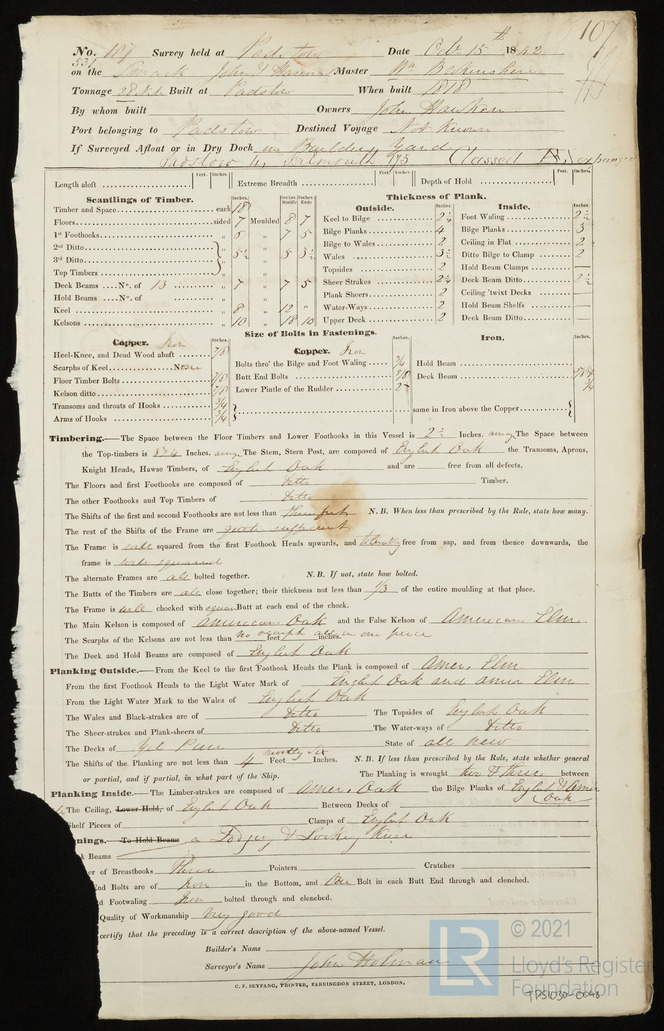 107
No. 107 Survey held at Padstow Date Octr 15th 1842
531
on the Smack John & Master Wm
Tonnage 28 Built at Padstow When built 1818
By whom built Owners John Hawken
Port belonging to Padstow Destined Voyage Not Known
If Surveyed Afloat or in Dry Dock in Builders Yard
Padstow to Falmouth Classed
Length aloft Feet. Inches. Extreme Breadth Feet. Inches. Depth of Hold Feet. Inches.
Scantlings of Timber.
Timber and Space each 18
Floors sided 7 Moulded 8 7
1st Foothooks 6 7 5
2nd Ditto
3rd Ditto 5½ 5 3½
Top Timbers
Deck Beams No. of 13 7 7 5
Hold Beams No. of
Keel 8 12
Kelsons 10 18 10
Thickness of Plank.
Outside.
Keel to Bilge 2¼
Bilge Planks 4
Bilge to Wales 2
Wales 3½
Topsides 2
Sheer Strakes 2½
Plank Sheers 2
Water-Ways 2
Upper Deck 2
Inside.
Foot Waling 2½
Bilge Planks 3
Ceiling in Flat 2
Ditto Bilge to Clamp 2
Hold Beam Clamps
Deck Beam Ditto 2½
Ceiling 'twixt Decks
Hold Beam Shelfs
Deck Beam Ditto
Size of Bolts in Fastenings.
Copper. Iron
Heel-Knee, and Dead Wood abaft 7/8
Scarphs of Keel No.
Floor Timber Bolts 7/8
Kelson ditto 7/8
Transoms and throats of Hooks 3/4
Arms of Hooks 3/4
Copper. Iron
Bolts thro' the Bilge and Foot Waling 3/4
Butt End Bolts 5/8
Lower Pintle of the Rudder 2
Iron.
Hold Beam
Deck Beam
same in Iron above the Copper
Timbering.—The Space between the Floor Timbers and Lower Foothooks in this Vessel is 2½ Inches. The Space between
the Top-timbers is 3 & 4 Inches. The Stem, Stern Post, are composed of English Oak the Transoms, Aprons,
Knight Heads, Hawse Timbers, of English Oak and are free from all defects.
The Floors and first Foothooks are composed of Ditto Timber.
The other Foothooks and Top Timbers of Ditto
The Shifts of the first and second Foothooks are not less than Three feet N.B. When less than prescribed by the Rule, state how many.
The rest of the Shifts of the Frame are quite sufficient
The Frame is well squared from the first Foothook Heads upwards, and tolerably free from sap, and from thence downwards, the
frame is well squared
The alternate Frames are all bolted together. N.B. If not, state how bolted.
The Butts of the Timbers are all close together; their thickness not less than 1/3 of the entire moulding at that place.
The Frame is well chocked with equal Butt at each end of the chock.
The Main Kelson is composed of American Oak and the False Kelson of American Elm
The Scarphs of the Kelsons are not less than no scarph all in one piece feet inches.
The Deck and Hold Beams are composed of English Oak
Planking Outside.—From the Keel to the first Foothook Heads the Plank is composed of Amer. Elm
From the first Foothook Heads to the Light Water Mark of English Oak and Amer Elm
From the Light Water Mark to the Wales of English Oak
The Wales and Black-strakes are of Ditto The Topsides of English Oak
The Sheer-strakes and Plank-sheers of Ditto The Water-ways of Ditto
The Decks of Yel Pine State of all new
The Shifts of the Planking are not less than 4 Feet mostly six Inches. N.B. If less than prescribed by the Rule, state whether general
or partial, and if partial, in what part of the Ship. The Planking is wrought two & three between
Planking Inside.—The Limber-strakes are composed of Amer. Oak the Bilge Planks of English & Amer Oak
The Ceiling, Lower Hold, of English Oak Between Decks of
Shelf Pieces of Clamps of English Oak
nings.—To Hold Beams a Lodging & Locking Knee
k Beams
er of Breasthooks Three Pointers Crutches
nd Bolts are of Iron in the Bottom, and One Bolt in each Butt End through and clenched.
d Footwaling Iron bolted through and clenched.
Quality of Workmanship Very good
certify that the preceding is a correct description of the above-named Vessel.
Builder's Name
Surveyor's Name John Holman
C. F. SEYFANG, PRINTER, FARRINGDON STREET, LONDON.
© 2021
LR
Lloyd's Register
Foundation
TPS1030-0048